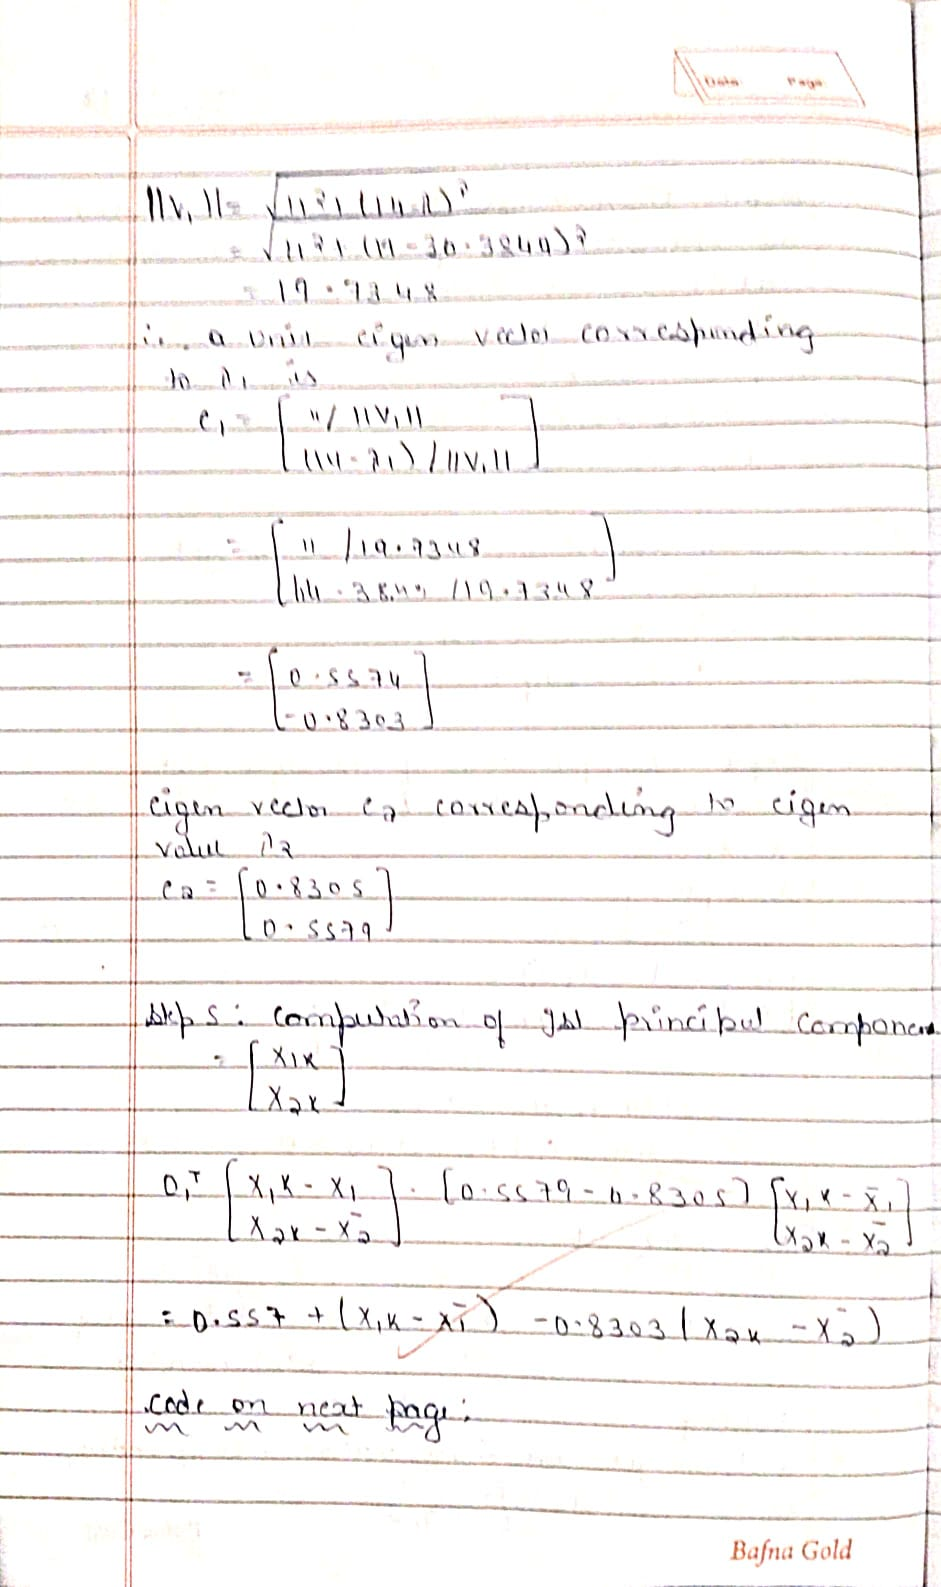 Date Page
||V₁||= √11²+(14-λ)²
= √11²+(14-30.3849)²
= 19.7348
i.e. a unit eigen vector corresponding
to λ₁ is
e₁ = [11/||V₁||
(14-λ₁)/||V₁||]
= [11/19.7348
/19.7348]
= [0.5574
-0.8303]
eigen vector e₂ corresponding to eigen
value λ₂
e₂ = [0.8305
0.5579]
step 5: computation of principal component
= [X1K
X2K]
[X₁K - X₁
X₂K - X̄₂] = [0.5579 -0.8305] [X₁K - X̄₁
X₂K - X̄₂]
= 0.557 + (X₁K - X̄₁) -0.8303(X₂K - X̄₂)
code on next page:
Bafna Gold